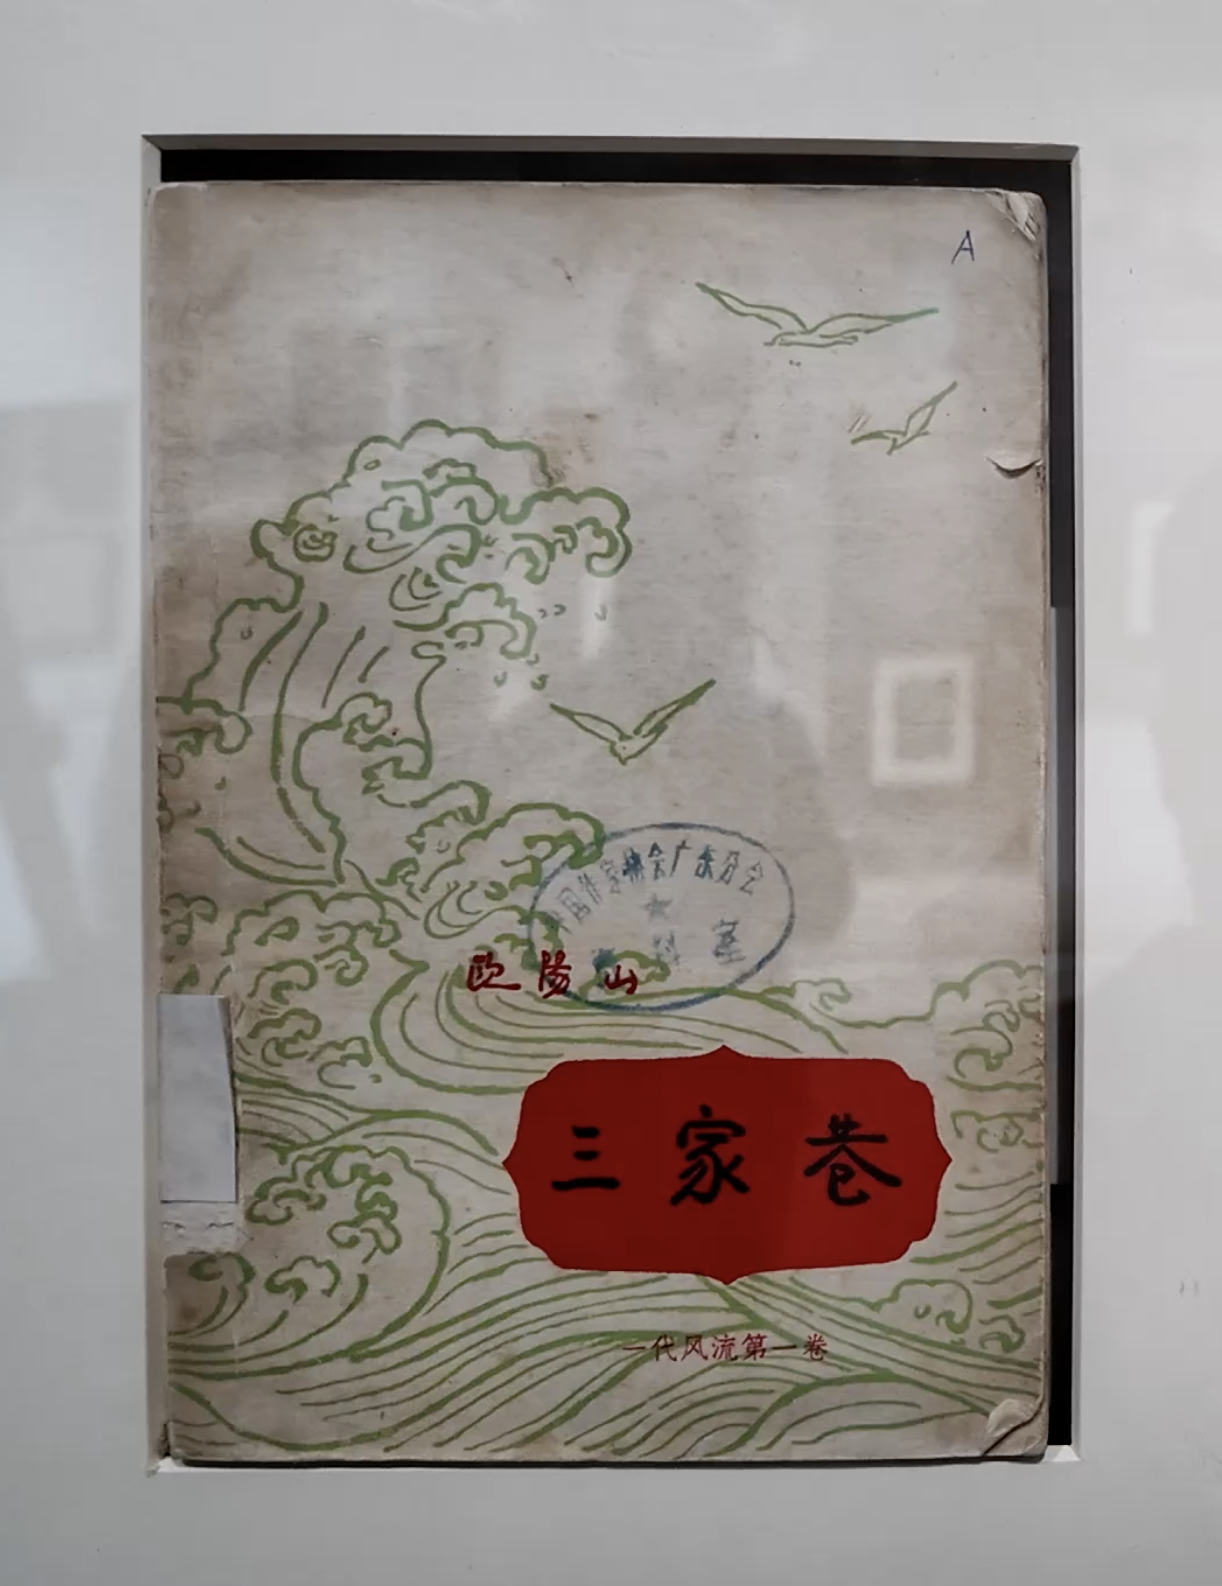 A
中国作家协会广东分会
资料室
欧陽山
三家巷
一代风流第一卷